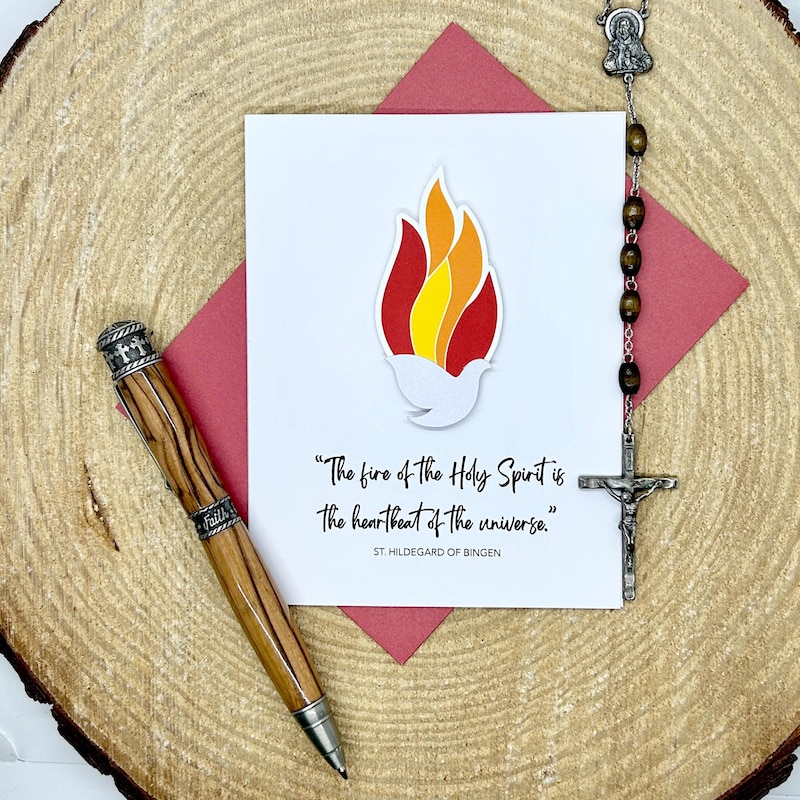 “The fire of the Holy Spirit is
the heartbeat of the universe.”
ST. HILDEGARD OF BINGEN
Faith